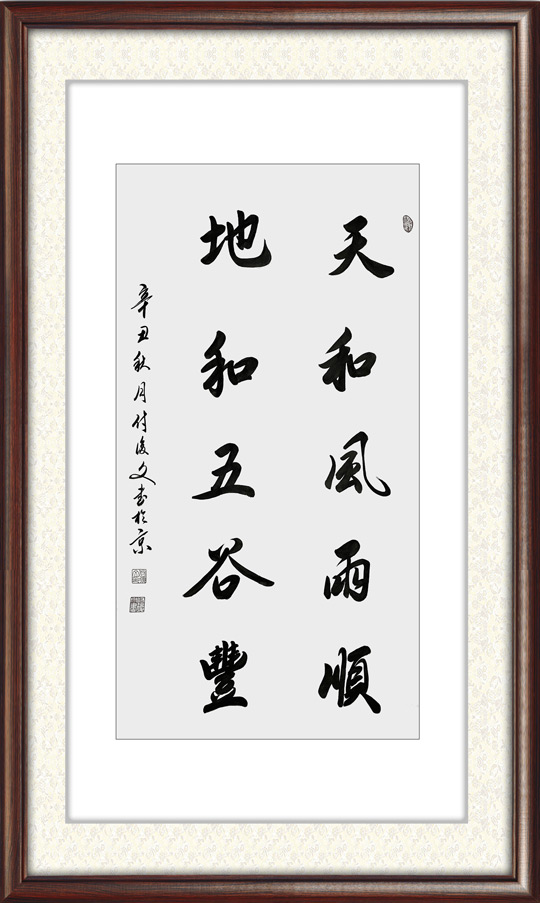 天和風雨順
地和五谷豐
辛丑秋月付俊文书於京